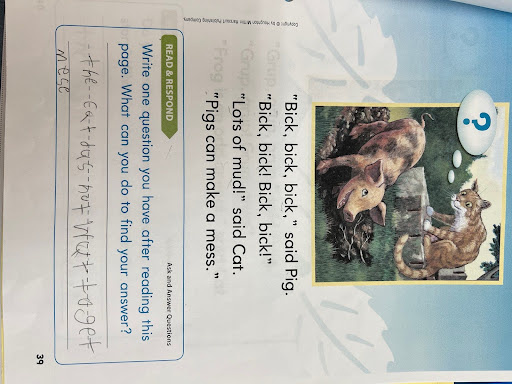 ?
"Bick, bick, bick," said Pig.
"Bick, bick! Bick, bick!"
"Lots of mud!" said Cat.
"Pigs can make a mess."
Copyright © by Houghton Mifflin Harcourt Publishing Company
READ & RESPOND
Ask and Answer Questions
Write one question you have after reading this
page. What can you do to find your answer?
the to get
mese
39